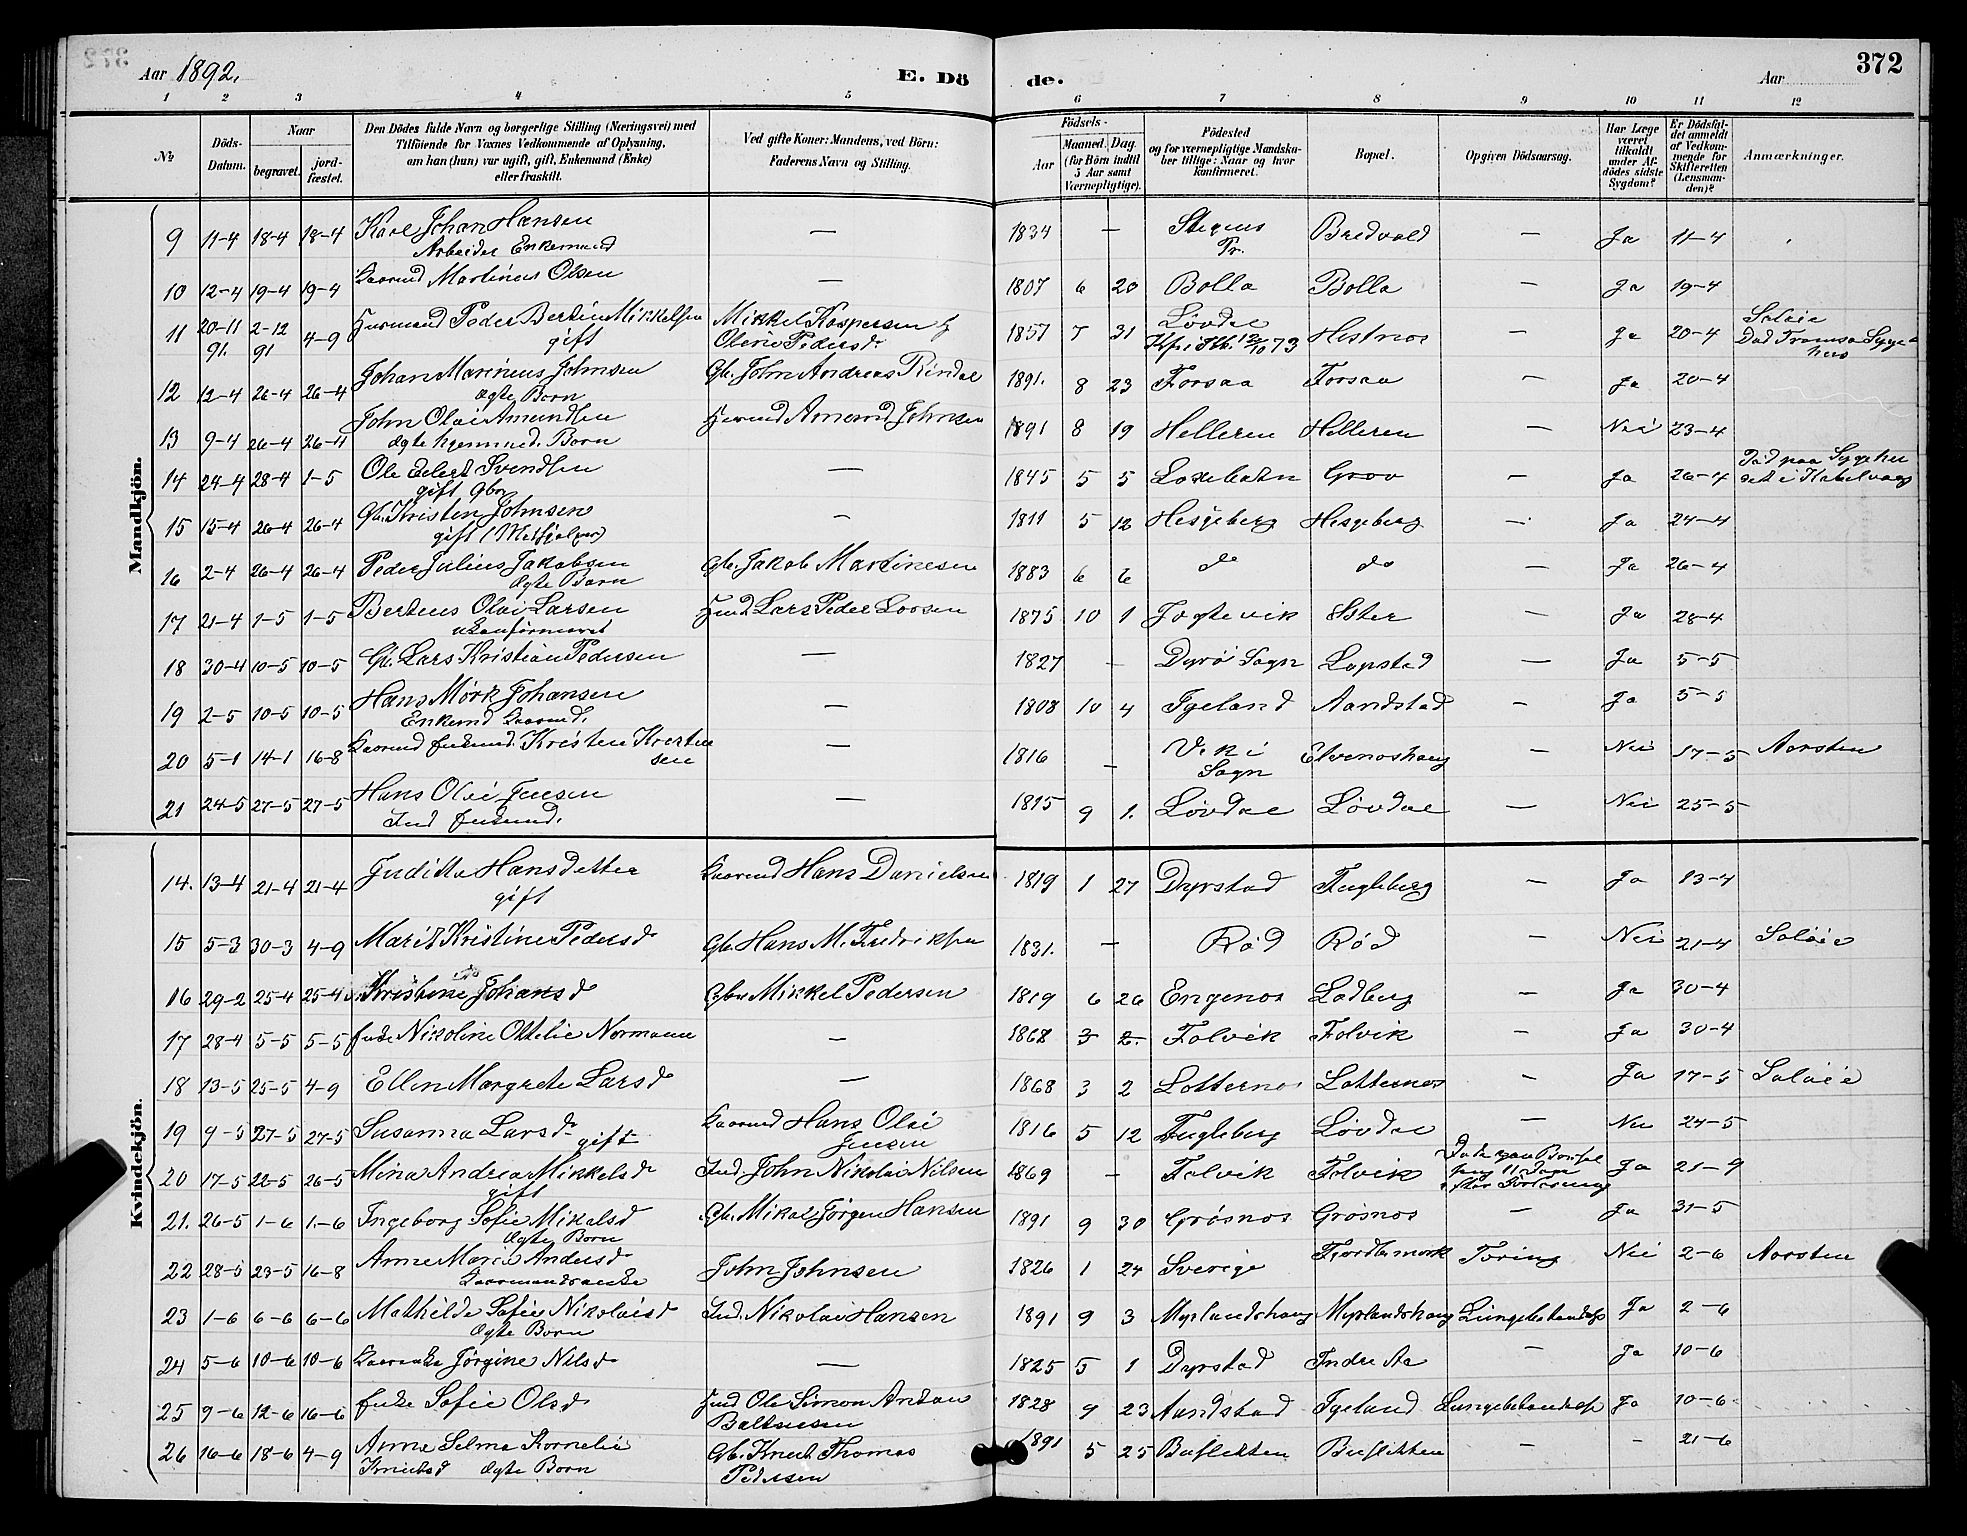 Aar 1892. E. Dö de. Aar 372
1 2 3 4 5 6 7 8 9 10 11 12
No
Döds-Datum.
Naar
begravet.
jord-fæstet.
Den Dödes fulde Navn og borgerlige Stilling (Næringsvei) med
Tilföiende for Voxnes Vedkommende af Oplysning,
om han (hun) var ugift, gift, Enkemand (Enke)
eller fraskilt.
Ved gifte Koner: Mandens, ved Börn:
Faderens Navn og Stilling.
Födsels-
Aar
Maaned. Dag.
(for Börn indtil 5 Aar samt Værnepligtige).
Födested
og for værnepligtige Mandska-
ber tillige: Naar og hvor
konfirmeret.
Bopæl.
Opgiven Dödsaarsag.
Har Læge været tilkaldt under Af-dödes sidste Sygdom?
Er Dödsfal-det anmeldt af Vedkom-mende for Skifteretten (Lensman-den)?
Anmærkninger.
Mandkjön.
9 11-4 18-4 18-4 Karl Johan Hansen — 1834 — Stegens Bredvold — Ja 11-4
Arbeider Enkemand Pr.
10 12-4 19-4 19-4 Kaarmd Martinus Olsen — 1807 6 20 Bolla Bolla — Ja 19-4
11 20-11 91. 2-12 91 4-9 Husmand Peder Bertin Mikkelsen Mikkel Kaspersen 1857 7 31 Løvdal Hestnes — Ja 20-4
gift Oline Pedersd. 73 Død Tromsø Syge-
hus
12 12-4 26-4 26-4 Johan Marinius Johnsen Gb. John Andreas Rindal 1891. 8 23 Forsaa Forsaa — Ja 20-4
ægte Barn
13 9-4 26-4 26-4 John Olai Amundsen Amund Johnsen 1891 8 19 Helleren Helleren — Nei 23-4
ægte hjemmed. Barn
14 24-4 28-4 1-5 Ole Edeard Svendsen — 1845 5 5 Grov — Ja 26-4 Død paa Sygehu
gift Gbr set i Kabelvaag
15 15-4 26-4 26-4 Gb. Kristen Johnsen — 1811 5 12 Hesjeberg Hesjeberg — Ja 24-4
gift (Medhjælper)
16 2-4 26-4 26-4 Peder Julius Jakobsen Gb. Jakob Martinesen 1883 6 6 do do — Ja 26-4
Ægte Barn
17 21-4 1-5 1-5 Berteus Olai Larsen Lars Peder Larsen 1875 10 1 Jogtevik — Ja 28-4
ukonfirmeret
18 30-4 10-5 10-5 Gb. Lars Kristian Pedersen — 1827 — Dyrø Sogn Lapstad — Ja 5-5
19 2-5 10-5 10-5 Hans Mørk Johansen — 1808 10 4 Tyeland Aandstad — Ja 5-5
Enkemd Kaarmd.
20 5-1 14-1 16-8 Kaarmd Kristen Kristen — 1816 — Elveneshaug — Nei 17-5 Aarsten
sen Sogn
21 24-5 27-5 27-5 Hans Olai Jensen — 1815 9 1. Løvdal Løvdal — Nei 25-5
Ind
Kvindekjön.
14. 13-4 21-4 21-4 Juditta Hansdatter Kaarmd Hans Danielsen 1819 1 27 Dyrstad Fugleberg — Ja 13-4
gift
15 5-3 30-3 4-9 Marit Kristine Pedersd Gb. Hans M. Fredriksen 1831. — Rød Rød — Nei 21-4
16 29-2 25-4 25-4 Kristine Johansd Gbr Mikkel Pedersen 1819 6 26 Engenes Ladberg — Ja 30-4
17 28-4 5-5 5-5 Nikoline Ottelie Normann — 1868 3 2. Folvik Folvik — Ja 30-4
18 13-5 25-5 4-9 Ellen Margrete Larsd — 1868 3 2 Lotternes Lotternes — Ja 17-5
19 9-5 27-5 27-5 Susanna Larsd gift Kaarmd Hans Olai 1816 5 12 Fugleberg Løvdal — Nei 24-5
Jensen
20 17-5 22-5 26-5 Mina Andrea Mikkelsd Ind. John Nikolai Nilsen 1869 — Folvik Folvik Ja 21-9
gift
21. 26-5 1-6 1-6 Ingeborg Sofie Mikalsd Gb. Mikal Jørgen Hansen 1891 9 30 Grøsnes Grøsnes — Ja 31-5
Ægte Barn
22 28-5 23-5 16-8 Anne Marie Andersd John Johnsen 1826 1 24 Sverige Tæring Nei 2-6 Aarsten
23 1-6 6-6 6-6 Mathilde Sofie Nikolaisd Ind. Nikolai Hansen 1891 9 3 Myrlandshaug Myrlandshaug Lungebetændelse Ja 2-6
Ægte Barn
24 5-6 10-6 10-6 Jørgine Nilsd — 1825 5 1 Dyrstad Indre Aa — Ja 10-6
25 9-6 12-6 16-6 Sofie Olsd Ole Simon Andreas 1828 9 23 Aandstad Tyeland Lungebetændelse Ja 10-6
Baltsersen
26 16-6 18-6 4-9 Anne Selma Kornelie Gb. Knut Thomas 1891 5 25 — — 21-6
Knutsd Ægte Barn Pedersen